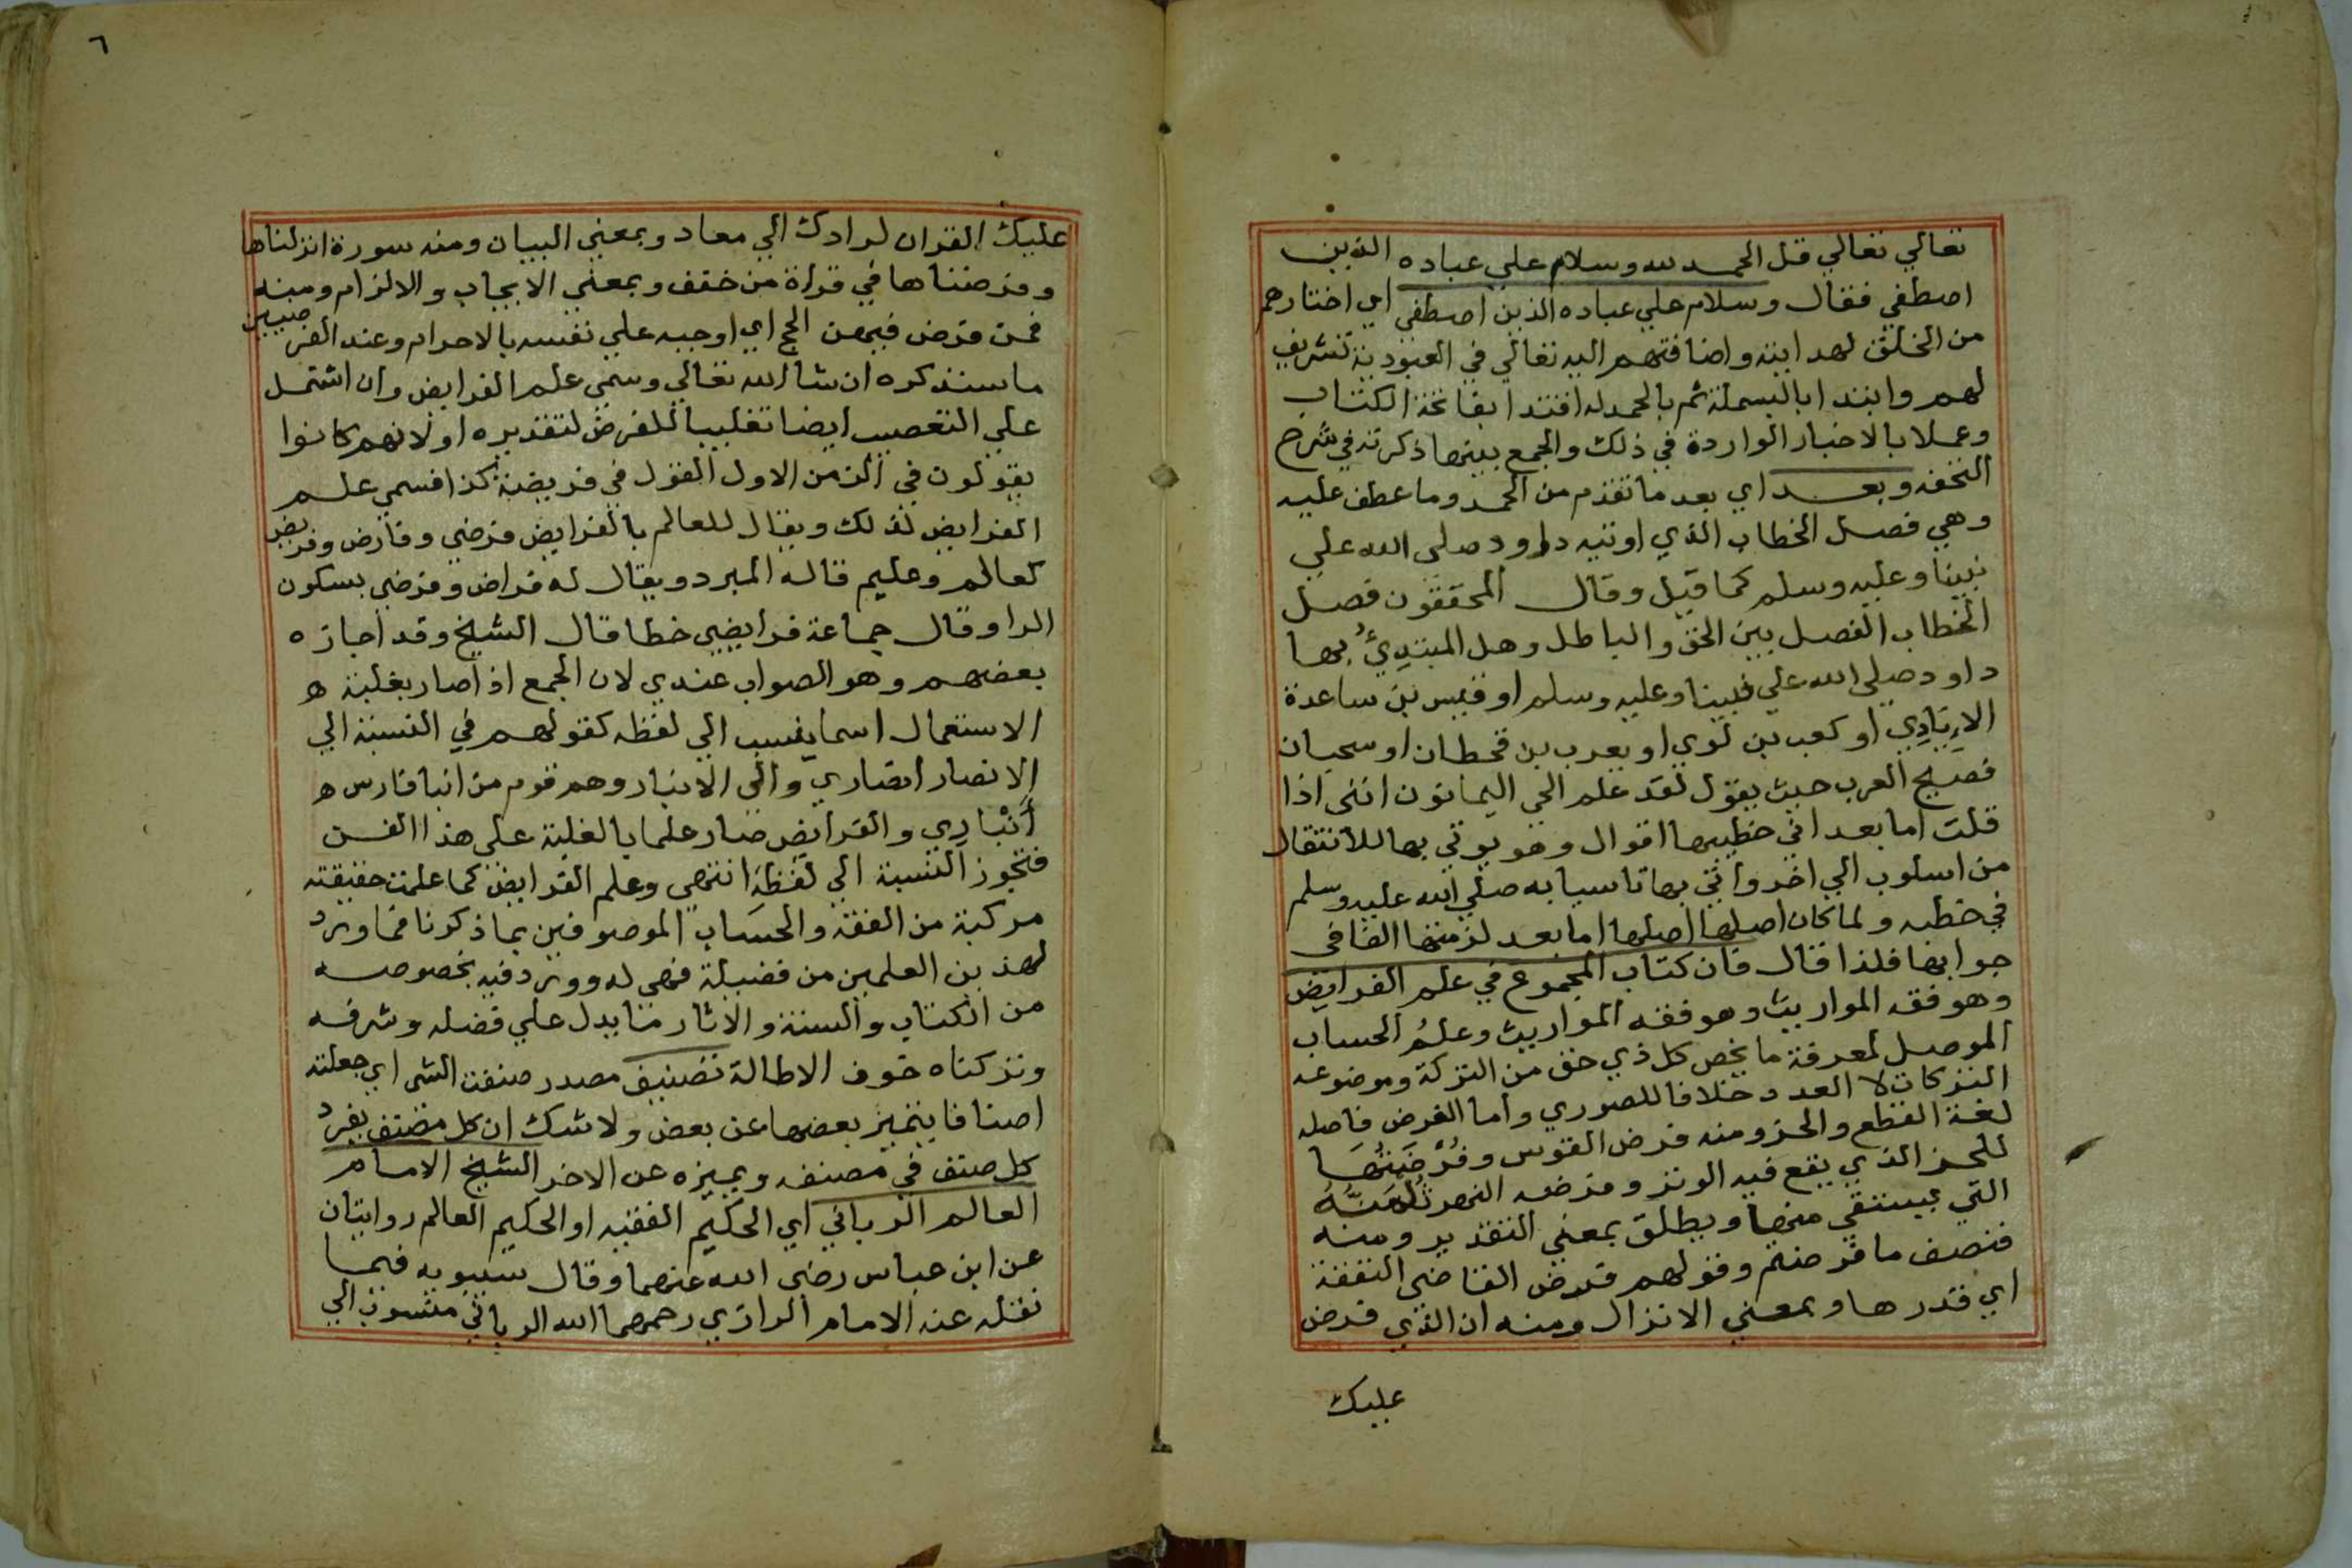 تعالي تعالي قل الحمد لله وسلام علي عباده الذين
اصطفي فقال وسلام علي عباده الذين اصطفي اي اختارهم
من الخلق لهدايته واضافتهم اليه تعالي في العبودية تشريف
لهم وابتدا بالبسملة ثم بالحمدله اقتدا بفاتحة الكتاب
وعملا بالاخبار الواردة في ذلك والجمع بينها ذكرته في شرح
التحفه وبعد اي بعد ما تقدم من الحمد وما عطف عليه
وهي فصل الخطاب الذي اوتيه داود صلى الله علي
نبينا وعليه وسلم كما قيل وقال المحققون فصل
الخطاب الفصل بين الحق والباطل وهل المبتدِئُ بها
داود صلى الله علي نبينا وعليه وسلم او قيس بن ساعدة
الاِيَادِي او كعب بن لوي او يعرب بن قحطان او سحبان
فصيح العرب حيث يقول لقد علم الحي اليمانون انني اذا
قلت اما بعد اني خطيبها اقوال وهو يوتي بها للانتقال
من اسلوب الي اخر واتي بها تاسيا به صلي الله عليه وسلم
في خطبه ولما كان اصلها اصلها اما بعد لزمتها الفا في
جوابها فلذا قال فان كتاب المجموع في علم الفرايض
وهو فقه المواريث وهو فقه المواريث وعلمُ الحساب
الموصل لمعرفة ما يخص كل ذي حق من التركة وموضوعه
التركات لا العدد خلافا للصوري واما الفرض فاصله
لغة القطع والحز ومنه فرض القوس وفُرْضَتُهَا
للحز الذي يقع فيه الوتر وفرضه النهر ثُلمَتُهُ
التي يستقي منها ويطلق بمعني التقدير ومنه
فنصف ما فرضتم وقولهم فرض القاضي النفقة
اي قدرها وبمعني الانزال ومنه ان الذي فرض
عليك
٦
عليك القران لرادك الي معاد وبمعني البيان ومنه سورة انزلناها
وفرضناها في قراة من خفف وبمعني الايجاب والالزام ومنه
فمن فرض فيهن الحج اي اوجبه علي نفسه بالاحرام وعند الفرضيين
ما سنذكره ان شا الله تعالي وسمي علم الفرايض وان اشتمل
علي التعصيب ايضا تغليبا للفرض لتقديره اولانهم كانوا
يقولون في الزمن الاول القول في فريضة كذا فسمي علم
الفرايض لذلك ويقال للعالم بالفرايض فرضي وفارض وفريض
كعالم وعليم قاله المبرد ويقال له فراض وفرضي بسكون
الرا وقال جماعة فرايضي خطا قال الشيخ وقد اجازه
بعضهم وهو الصواب عندي لان الجمع اذا صار بغلبة ه
الاستعمال اسما ينسب الي لفظه كقولهم في النسبة الي
الانصار انصاري والي الانبار وهم قوم من ابنا فارس ه
أَنْبَارِي والفرايض صار علما بالغلبة على هذا الفن
فتجوز النسبة الي لفظهِ انتهى وعلم الفرايض كما علمت حقيقته
مركبة من الفقه والحساب الموصوفين بما ذكرنا فما ورد
لهذين العلمين من فضيلة فهى له وورد فيه بخصوصه
من الكتاب والسنة والاثار ما يدل علي فضله وشرفه
وتركناه خوف الاطالة تصنيف مصدر صنفت الشى اي جعلته
اصنافا يتميز بعضها عن بعض ولا شك ان كل مصنف يفرد
كل صنف في مصنفه ويميزه عن الاخر الشيخ الامام
العالم الرباني اي الحكيم الفقيه او الحكيم العالم روايتان
عن ابن عباس رضى الله عنهما وقال سيبويه فيما
نقله عنه الامام الرازي رحمهما الله الرباني منسوب الي